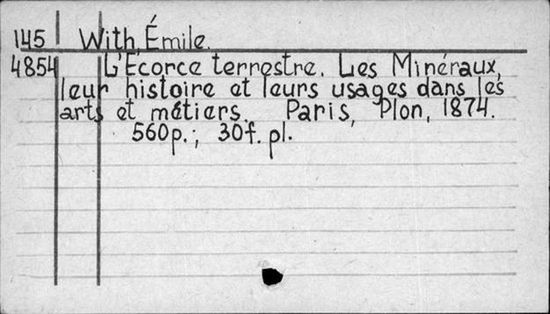 145 With, Émile.
4854 L'Écorce terrestre. Les Minéraux,
leur histoire et leurs usages dans les
arts et métiers. Paris, Plon, 1874.
560p.; 30f. pl.